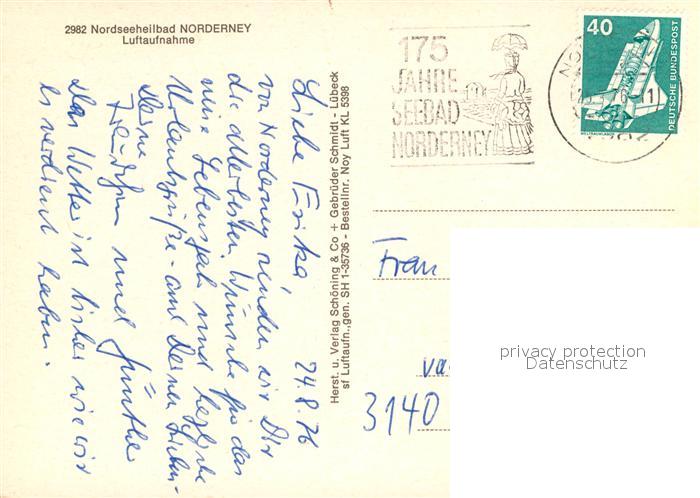 2982 Nordseeheilbad NORDERNEY
Luftaufnahme
24.8.76
Liebe Erika
von Norderney senden wir Dir
die allerbesten Wünsche für das
neue Lebensjahr und herzliche
Urlaubsgrüße - auch Deinen Lieben -
Deine
und Günther
Das Wetter ist bisher wie wir
es verdient haben.
Herst. u. Verlag Schöning & Co + Gebrüder Schmidt - Lübeck
sf Luftaufn.,gen. SH 1-35736 - Bestellnr. Noy Luft KL 5398
175
JAHRE
SEEBAD
NORDERNEY
40
DEUTSCHE BUNDESPOST
WELTRAUMLABOR
Frau
3140
privacy protection
Datenschutz